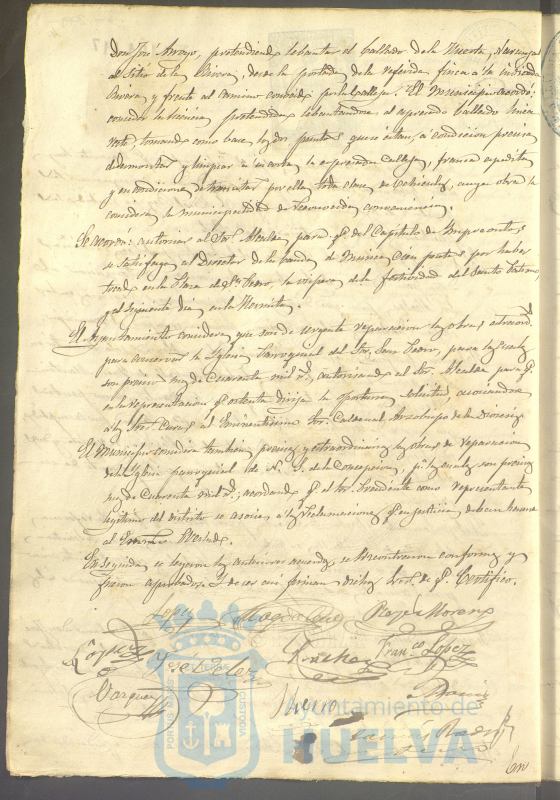 Don José Arroyo, pretendiendo levantar el ballado de la Huerta, Naranjal
al Sitio de la Rivera, desde la portada de la referida finca a la indicada
Rivera y frente al camino conocido por la Calleja. El Municipio acordó:
conceder la licencia pretendida levantándose el espresado ballado linea
recta, tomando como base los dos puntos que se citan, á condicion precisa
de desmontar y limpiar á su costa la espresada Calleja, franca espedita
y en condiciones de transitar por ella toda clase de vehiculos, cuya obra la
considera la municipalidad de reconocida conveniencia.
Se acordó: autorizar al Sor. Alcalde para q.e del Capitulo de Imprevistos
se satisfaga al Director de la banda de musica cien pesetas por haber
tocado en la Plaza de S.n Pedro, la vispera de la festividad del Santo Patrono,
y el siguiente dia en la Hermita.
El Ayuntamiento considera que son de urgente reparacion las obras
para conservar la Yglesia Parroquial del Sor. San Pedro, para las cuales
son precisos mas de cuarenta mil r.s, autorizando al Sor. Alcalde para q.e
en la representacion q.e ostenta dirija la oportuna solicitud, asociandose
a los Sres. Curas al Eminentisimo Sor. Cardenal Arzobispo de la Diocesis
El Municipio considera tambien precisas y extraordinarias las obras de reparacion
de la Yglesia parroquial de N. S. de la Concepcion, p.a las cuales son precisos
mas de cuarenta mil r.s; acordando q.e el Sor. Presidente como representante
legitimo del distrito se asocie a las reclamaciones q.e en justicia deban hacerse
al Prelado.
En seguida se leyeron los anteriores acuerdos, se encontraron conformes y
fueron aprobados. Y de ser asi firman dichos Sres. de q.e Certifico.
Lopez Magdalena Roge Moreno
López José Perez Sanchez Fran.co Lopez
Vazquez
En
Ayuntamiento de
HUELVA
PORTUS MARIS
CUSTODIA